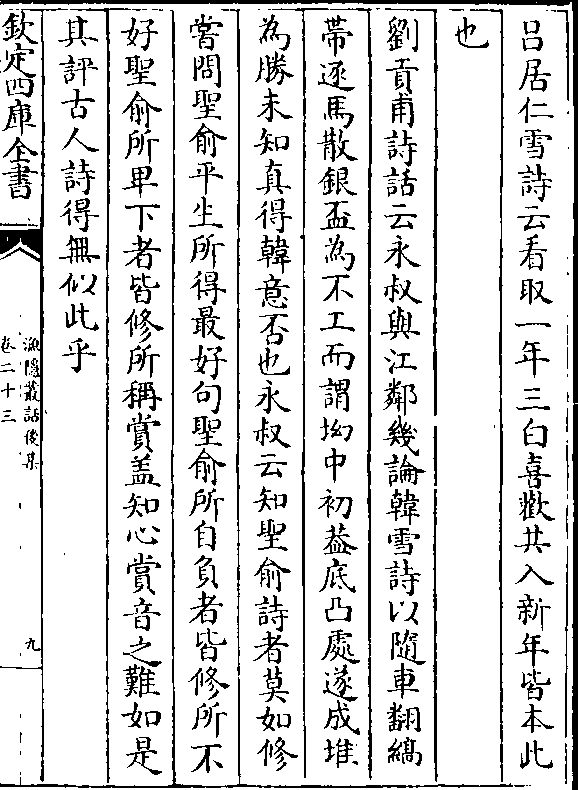 呂居仁雪詩云看取一年三白喜歡共入新年皆本此
也
劉貢甫詩話云永叔與江鄰幾論韓雪詩以隨車翻縞
帶逐馬散銀盃為不工而謂坳中初葢底凸處遂成堆
為勝未知真得韓意否也永叔云知聖俞詩者莫如修
嘗問聖俞平生所得最好句聖俞所自負者皆修所不
好聖俞所卑下者皆修所稱賞盖知心賞音之難如是
其評古人詩得無似此乎
欽定四庫全書
漁隱叢話後集
卷二十三
九